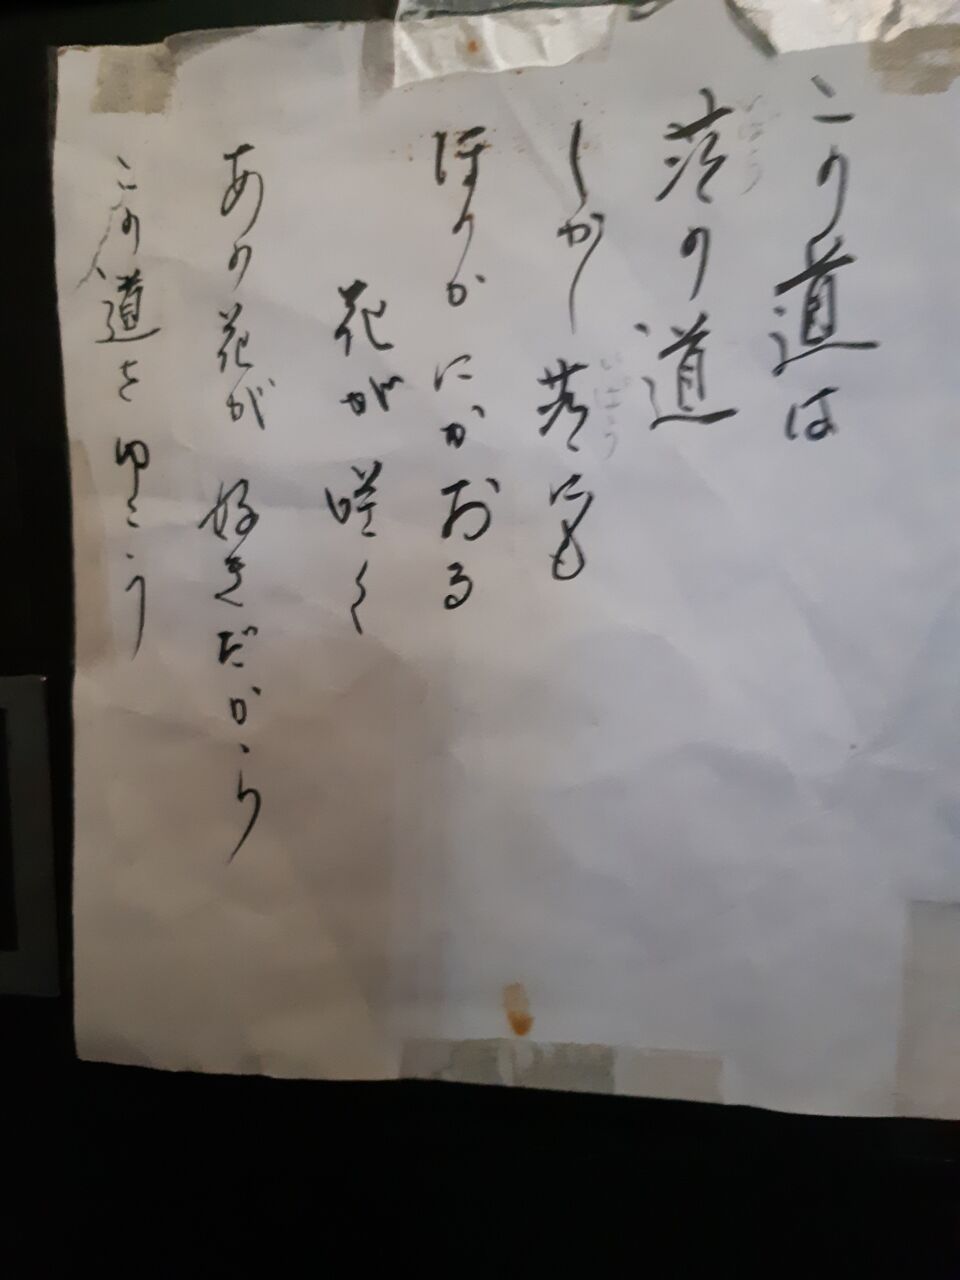 この道は
いばら
茨の道
いばら
しかし茨にも
ほのかにかおる
花が咲く
あの花が好きだから
この道をゆこう